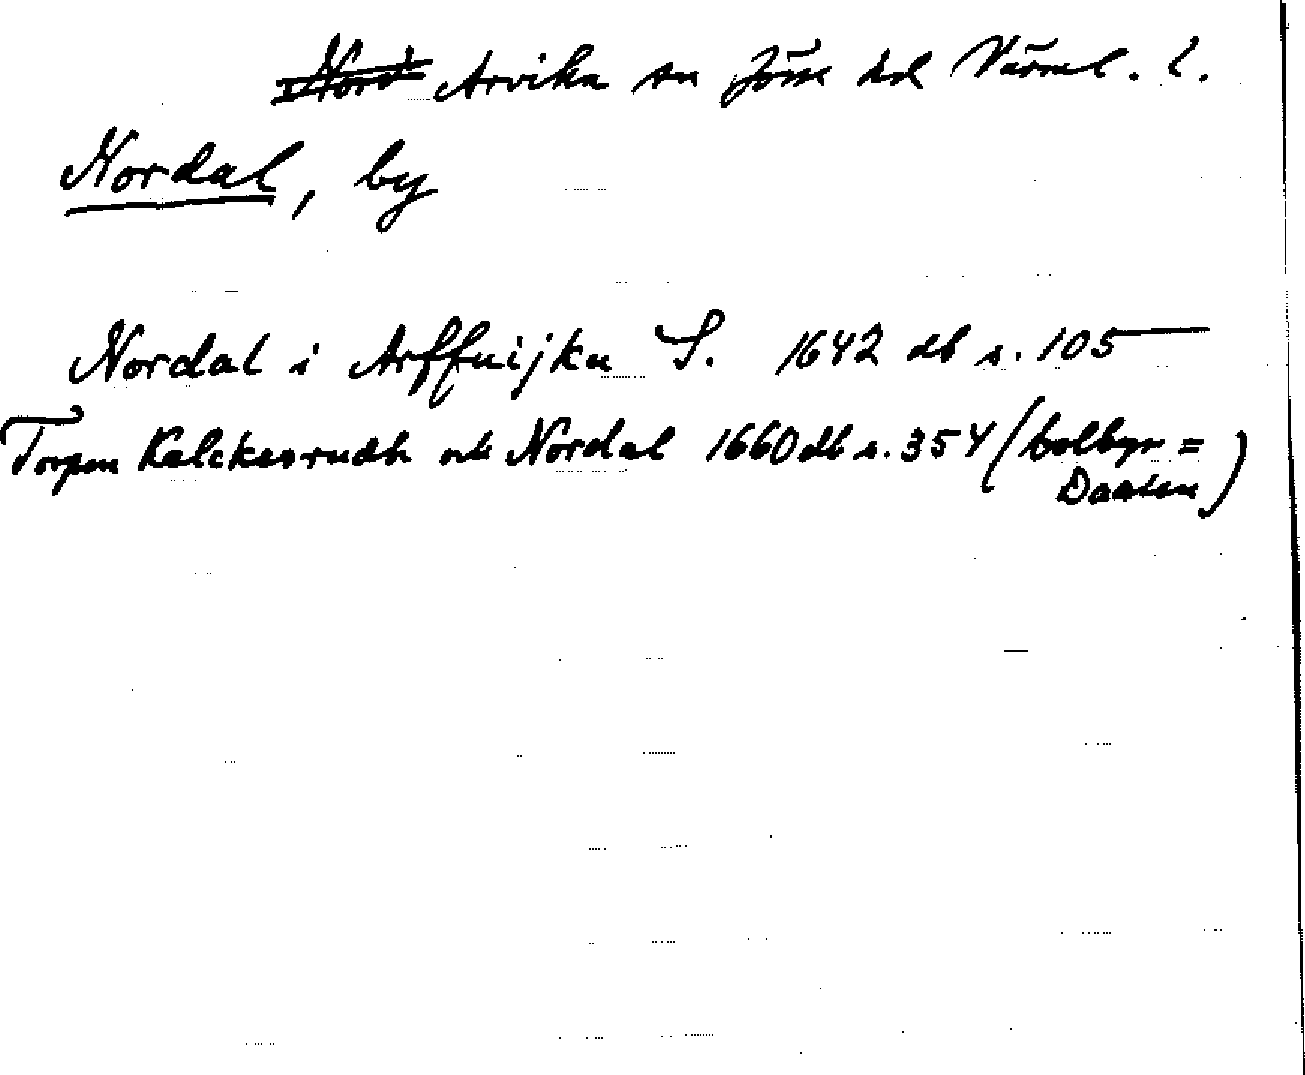 Arvika sn Jösse hd Värml. l.
Nordal, by
Nordal i Arffuijka S. 1642 db s. 105
Torpen Kalckesrudh och Nordal 1660 db s. 354 (bolbyn =
Daalen)